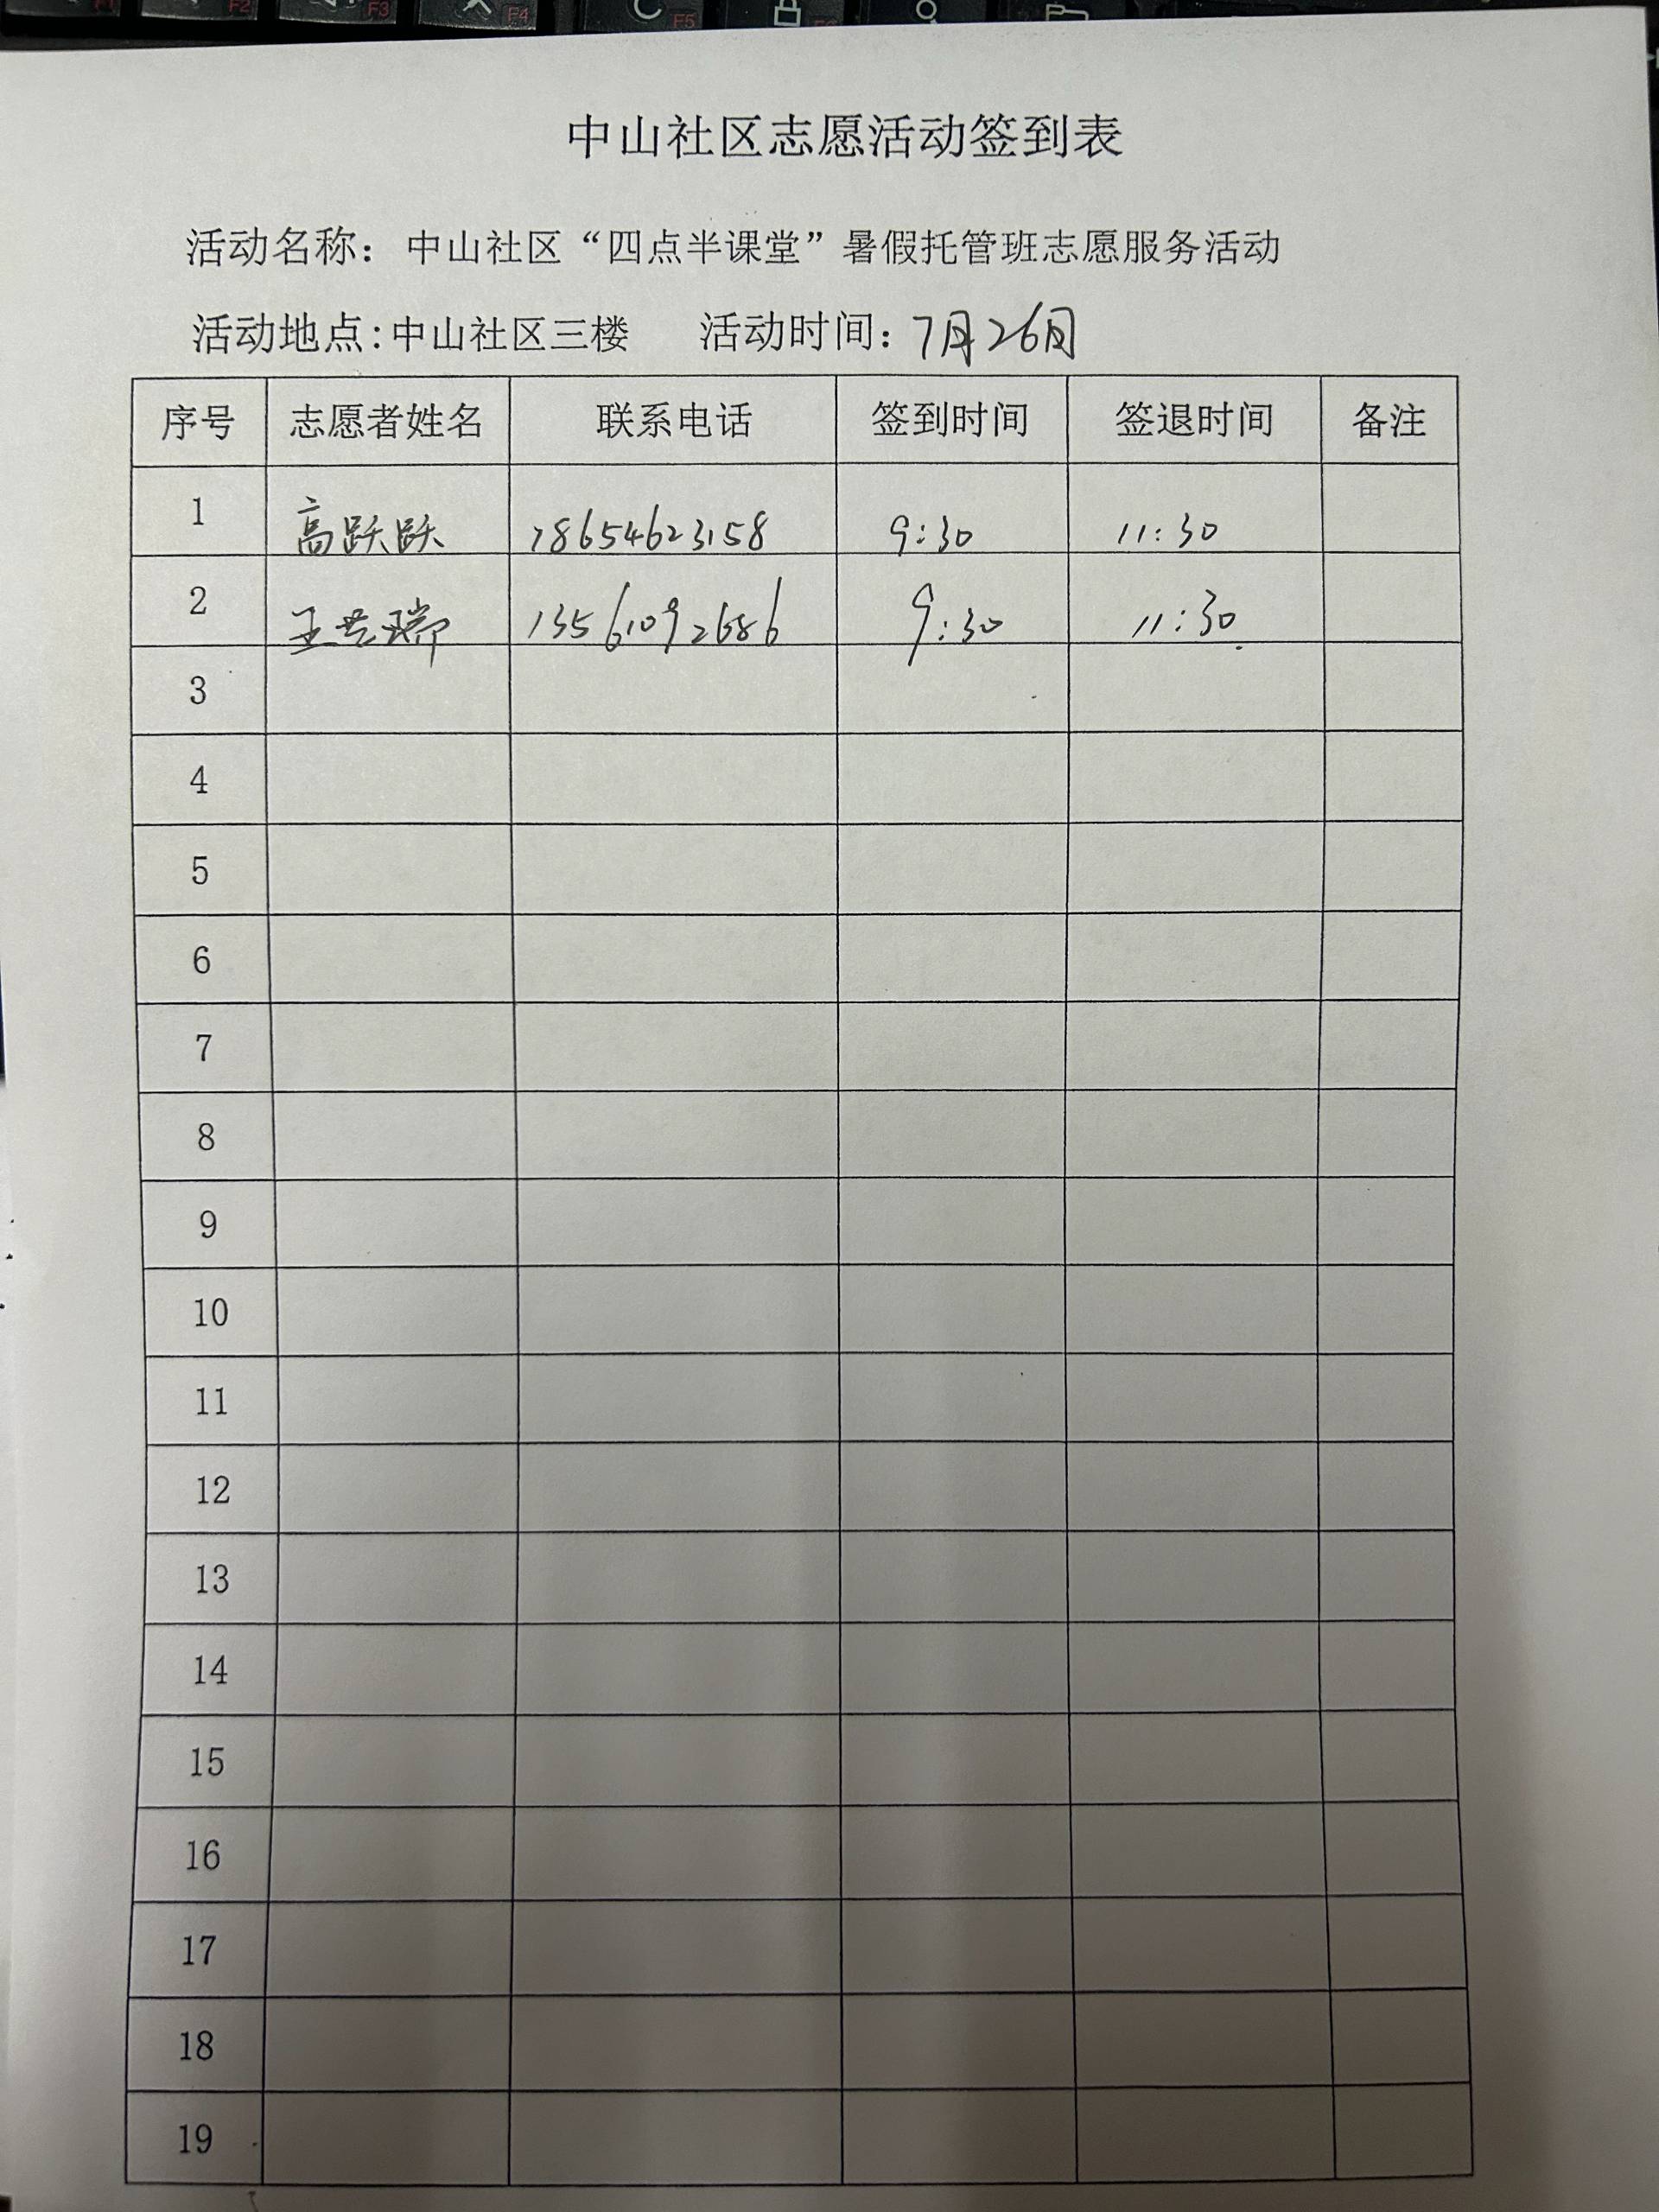 中山社区志愿活动签到表
活动名称：中山社区“四点半课堂”暑假托管班志愿服务活动
活动地点:中山社区三楼 活动时间：7月26日
序号 志愿者姓名 联系电话 签到时间 签退时间 备注
1 高跃跃 18654623158 9:30 11:30
2 王艺瑞 13561092686 9:30 11:30
3
4
5
6
7
8
9
10
11
12
13
14
15
16
17
18
19